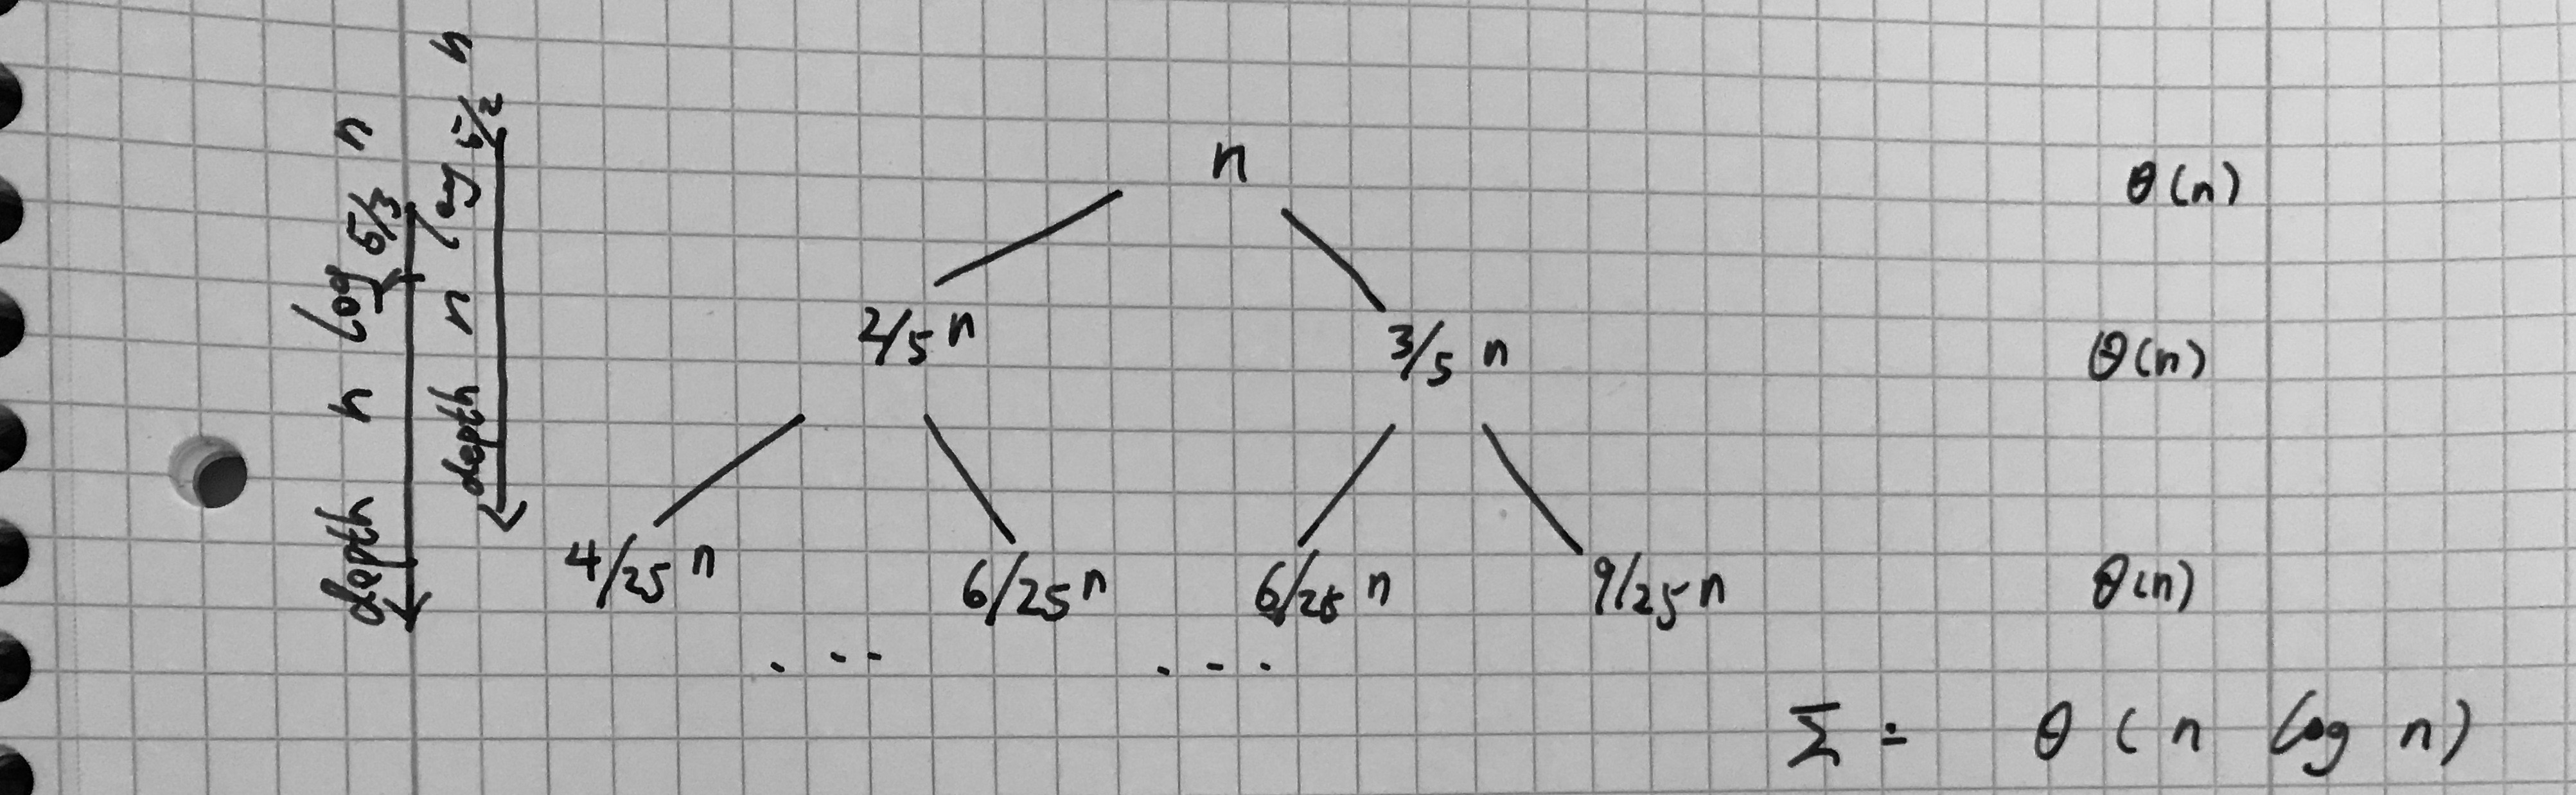 depth n log 5/3 n
depth n log 5/2 n
n θ(n)
2/5 n 3/5 n θ(n)
4/25 n 6/25 n 6/25 n 9/25 n θ(n)
... ...
Σ = θ(n log n)